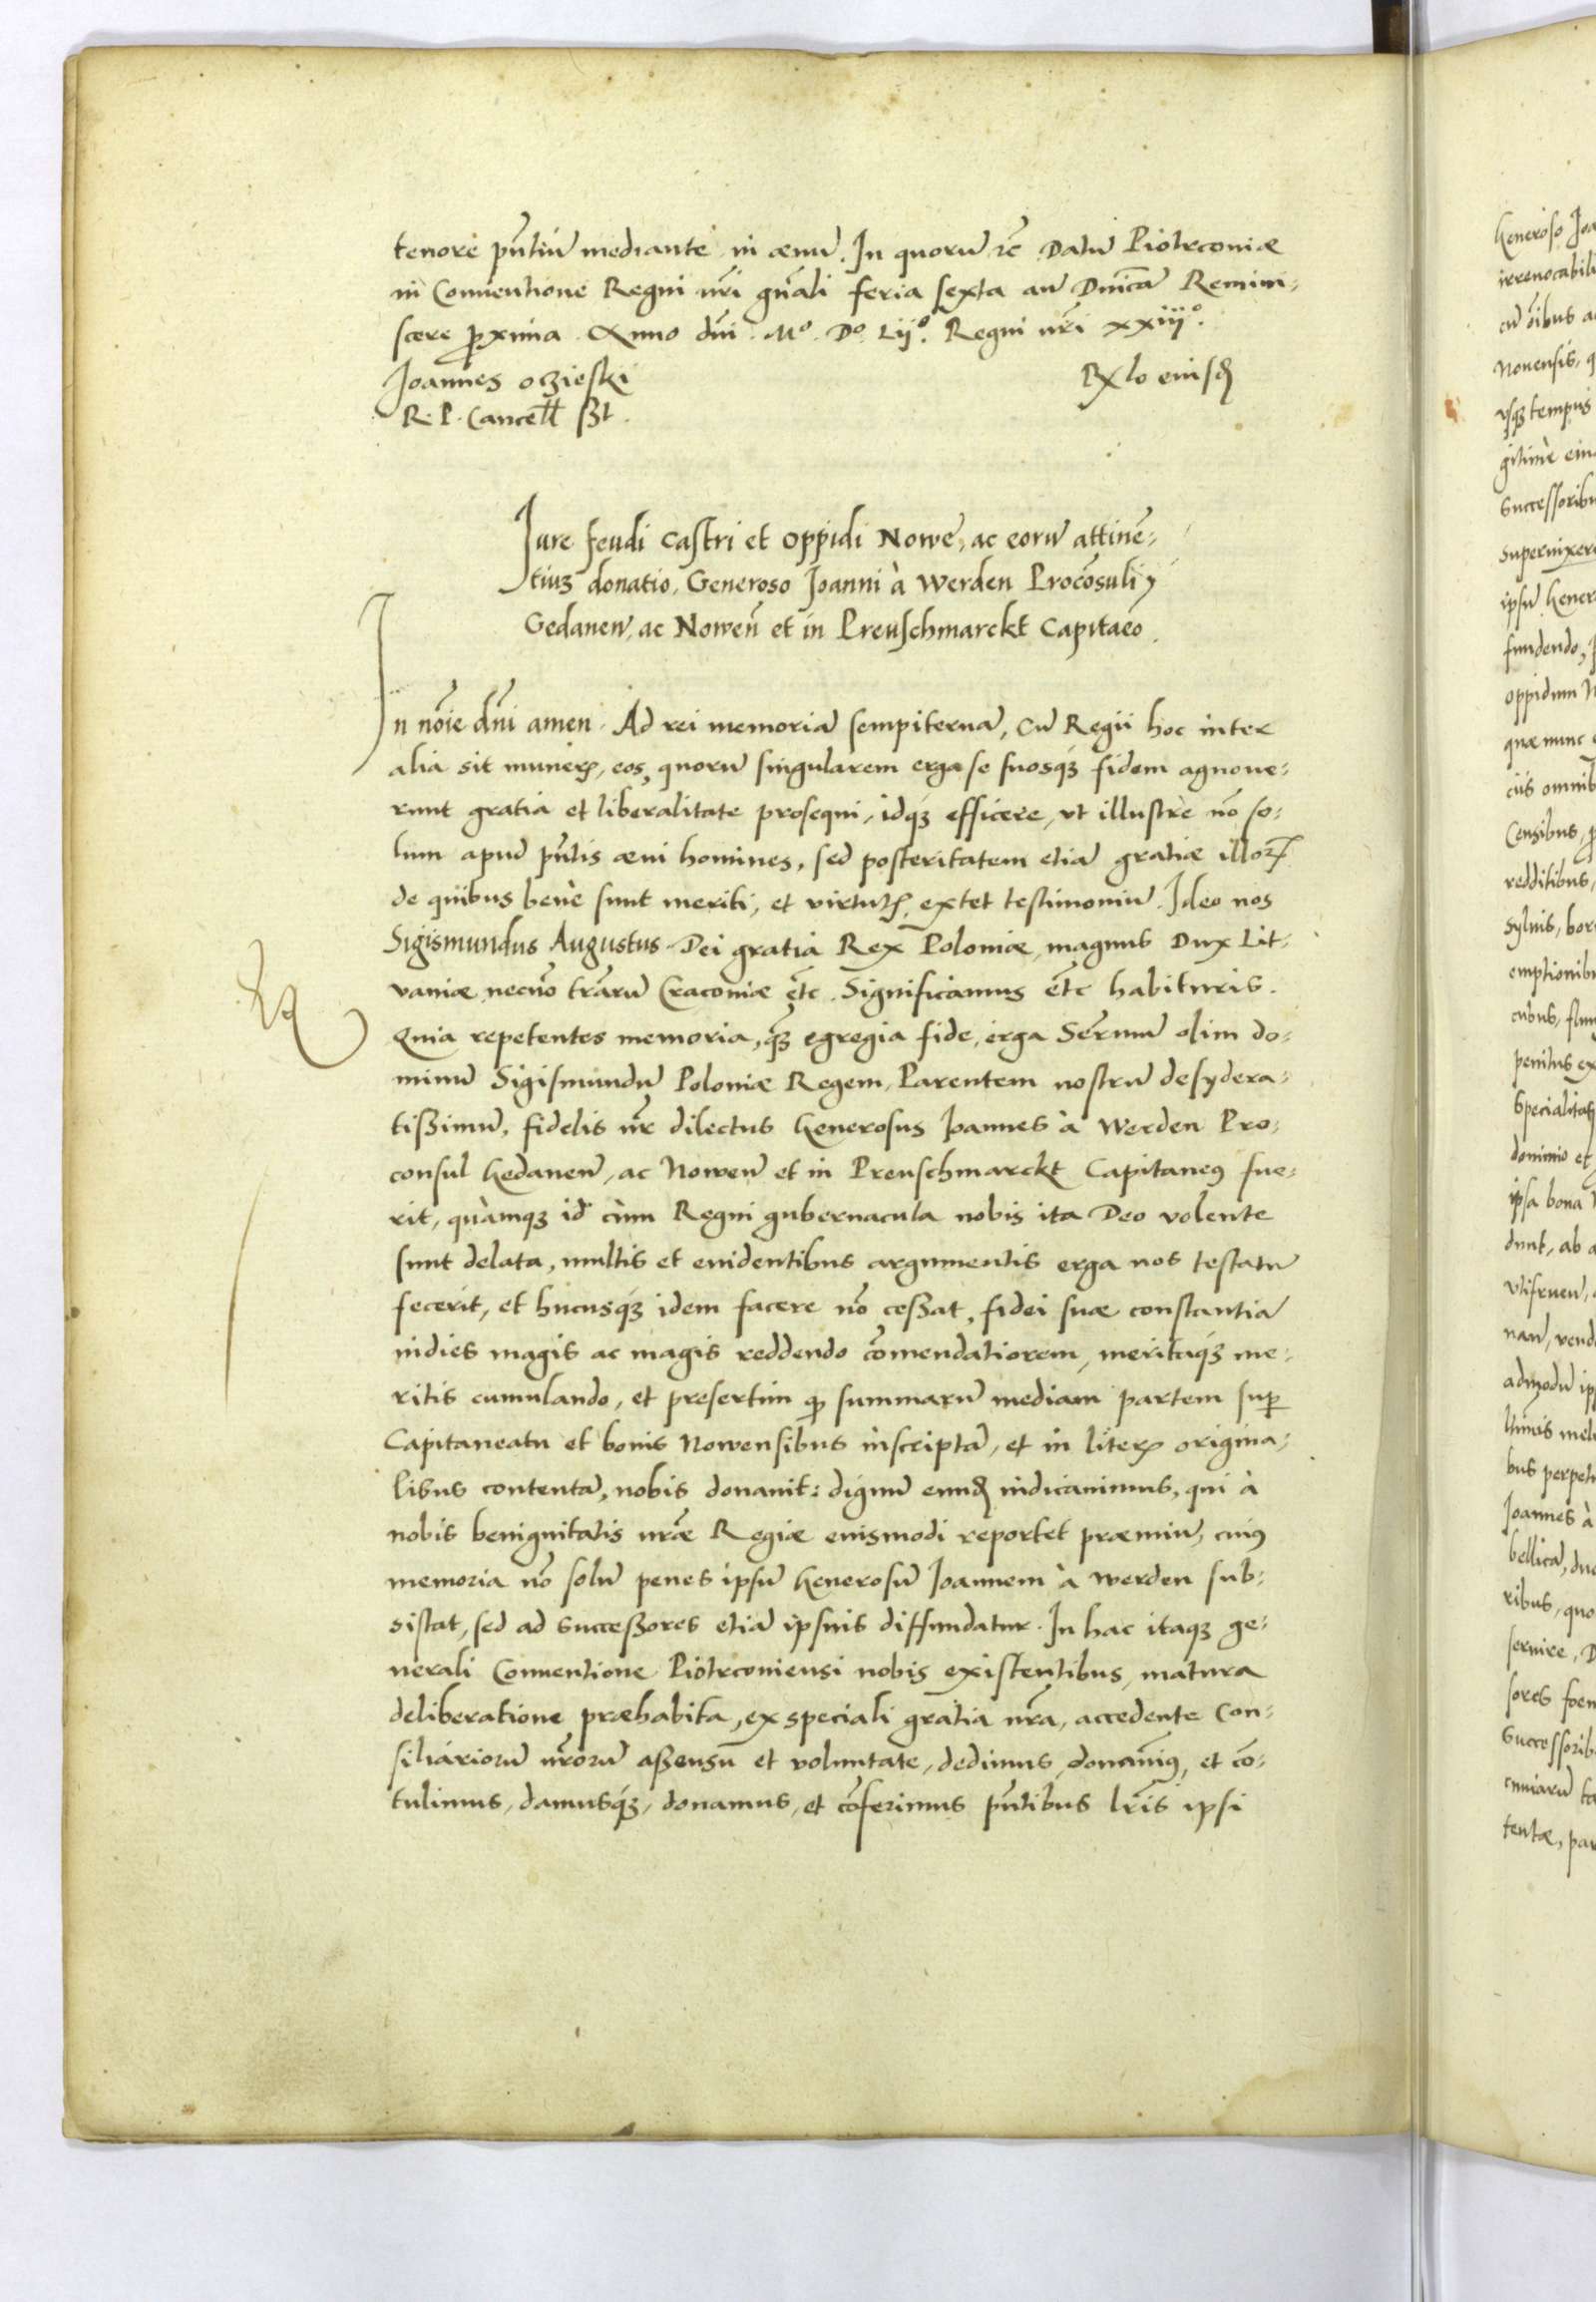 tenore pñtiũ mediante in æuũ. In quorũ rẽ. Datũ Piotrconiæ
in Conuentione Regni nri gnãli feria sexta añ Dnicã Remini-
scere ꝓxima. Anno dni. Mº. Dº. Lijº. Regni nri xxiijº.
Joannes oczieski
Rx lo eiusꝺ
R. P. Cancell ſßt.
Iure feudi Castri et Oppidi Nowe, ac eorũ attinẽ-
tiuȝ donatio, Generoso Joanni à Werden Procõsuli,
Gedaneñ, ac Noweñ et in Preuschmarckt Capitaeo.
In noĩe dñi amen. Ad rei memoriã sempiternã, Cũ Regii hoc inter
alia sit munerꝭ, eos, quorũ singularem erga se suosqȝ fidem agnoue-
runt gratia et liberalitate prosequi, idqȝ efficere, vt illustre nõ so-
lum apud pñtis æui homines, sed posteritatem etiã gratiæ illoꝝ
de quibus bene sunt meriti, et virtutꝭ, extet testimoniũ. Ideo nos
Sigismundus Augustus Dei gratia Rex Poloniæ, magnus Dux Lit-
vaniæ necnõ trãrũ Craconiæ etc. Significamus etc habituris.
Quia repetentes memoria, qȝ egregia fide, erga Serñmũ olim do-
minũ Sigismundũ Poloniæ Regem, Parentem nostrũ desydera-
tißimũ, fidelis nr dilectus Generosus Joannes à Werden Pro-
consul Gedaneñ, ac Noweñ et in Preuschmarckt Capitaneꝰ fue-
rit, quàmqȝ id cùm Regni gubernacula nobis ita Deo volente
sunt delata, multis et euidentibus argumentis erga nos testatũ
fecerit, et hucusqȝ idem facere nõ ceßat, fidei suæ constantiã
indies magis ac magis reddendo cõmendatiorem, meritaqȝ me-
ritis cumulando, et presertim ꝙ summarũ mediam partem suꝑ
Capitaneatu et bonis Nowensibus inscriptã, et in literꝭ origina-
libus contentã, nobis donauit: dignũ eundꝫ iudicauimus, qui à
nobis benignitatis nræ Regiæ eiusmodi reportet præmiũ, cuiꝰ
memoria nõ solũ penes ipsũ Generosũ Joannem à Werden sub-
sistat, sed ad succeßores etiã ipsius diffundatur. In hac itaqȝ ge-
nerali Conuentione Piotrconiensi nobis existentibus, matura
deliberatione præhabita, ex speciali gratia nra, accedente Con-
siliariorũ nrorũ aßensu et voluntate, dedimus, donauimꝰ, et cõ-
tulimus, damusqȝ, donamus, et cõferimus pñtibus lris ipsi
Generoso Joa
irreuocabili
cũ oibus a
Nouensis, q
usqȝ tempus
gitime eiu
Successoribu
superuixer
ipsũ Gener
fundendo,
oppidum N
quæ nunc
ciis omnib
Censibus, p
redditibus,
syluis, bor
emptionib
cubus, flum
penitus ex
Specialitat
dominio et
ipsa bona
dunt, ab a
vtifruen,
nan, vend
admodũ ip
ltimis mel
bus perpet
Joannes à
bellicã, du
ribus, quo
seruire, D
sores foen
Successorib
cuniarũ ta
tentæ, par